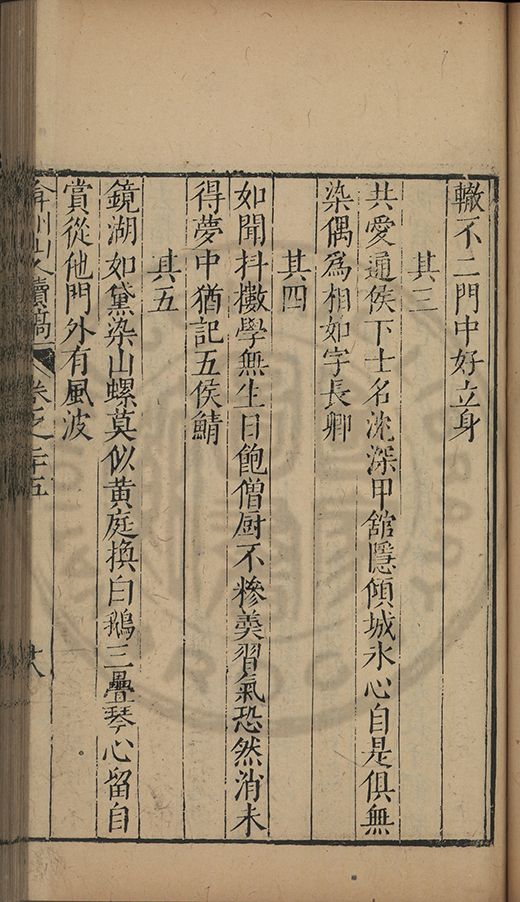 轍不二門中好立身
其三
共愛通侯下士名沈深甲舘隱傾城氷心自是俱無
染偶爲相如字長卿
其四
如聞抖擻學無生日飽僧厨不糝羮習氣恐然消未
得夢中猶記五侯鯖
其五
鏡湖如黛染山螺莫似黄庭換白鵝三疊琴心留自
賞從他門外有風波
續稿 卷之二十五